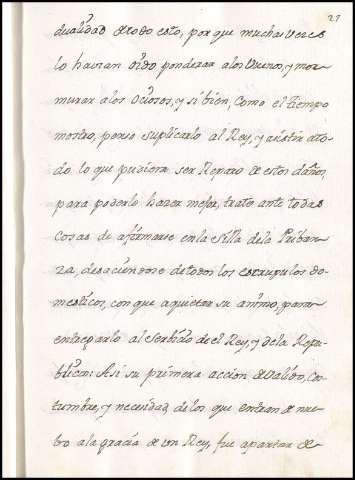 27
dualidad de todo esto, por que muchas veces
lo havian oido ponderar a los buenos, y mor-
murar a los ociosos, y si bien, como el tiempo
mostro, penso suplicarlo al Rey, y asistir a to-
do lo que pudiera ser Reparo de estos daños,
para poderlo hazer mejor, trato ante todas
cosas de afirmarse en la silla de la Priban-
za, desaciendose de todos los escrupulos do-
mesticos, con que aquietar su animo, para
entregarlo al serbicio de el Rey, y de la Repu-
blica: Asi su primera accion de Valido, cos-
tumbre, y necesidad de los que entran de nue-
bo a la gracia de un Rey, fue apartar de